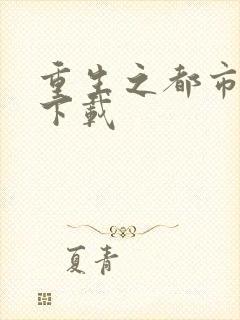 重生之都市
下载
夏青